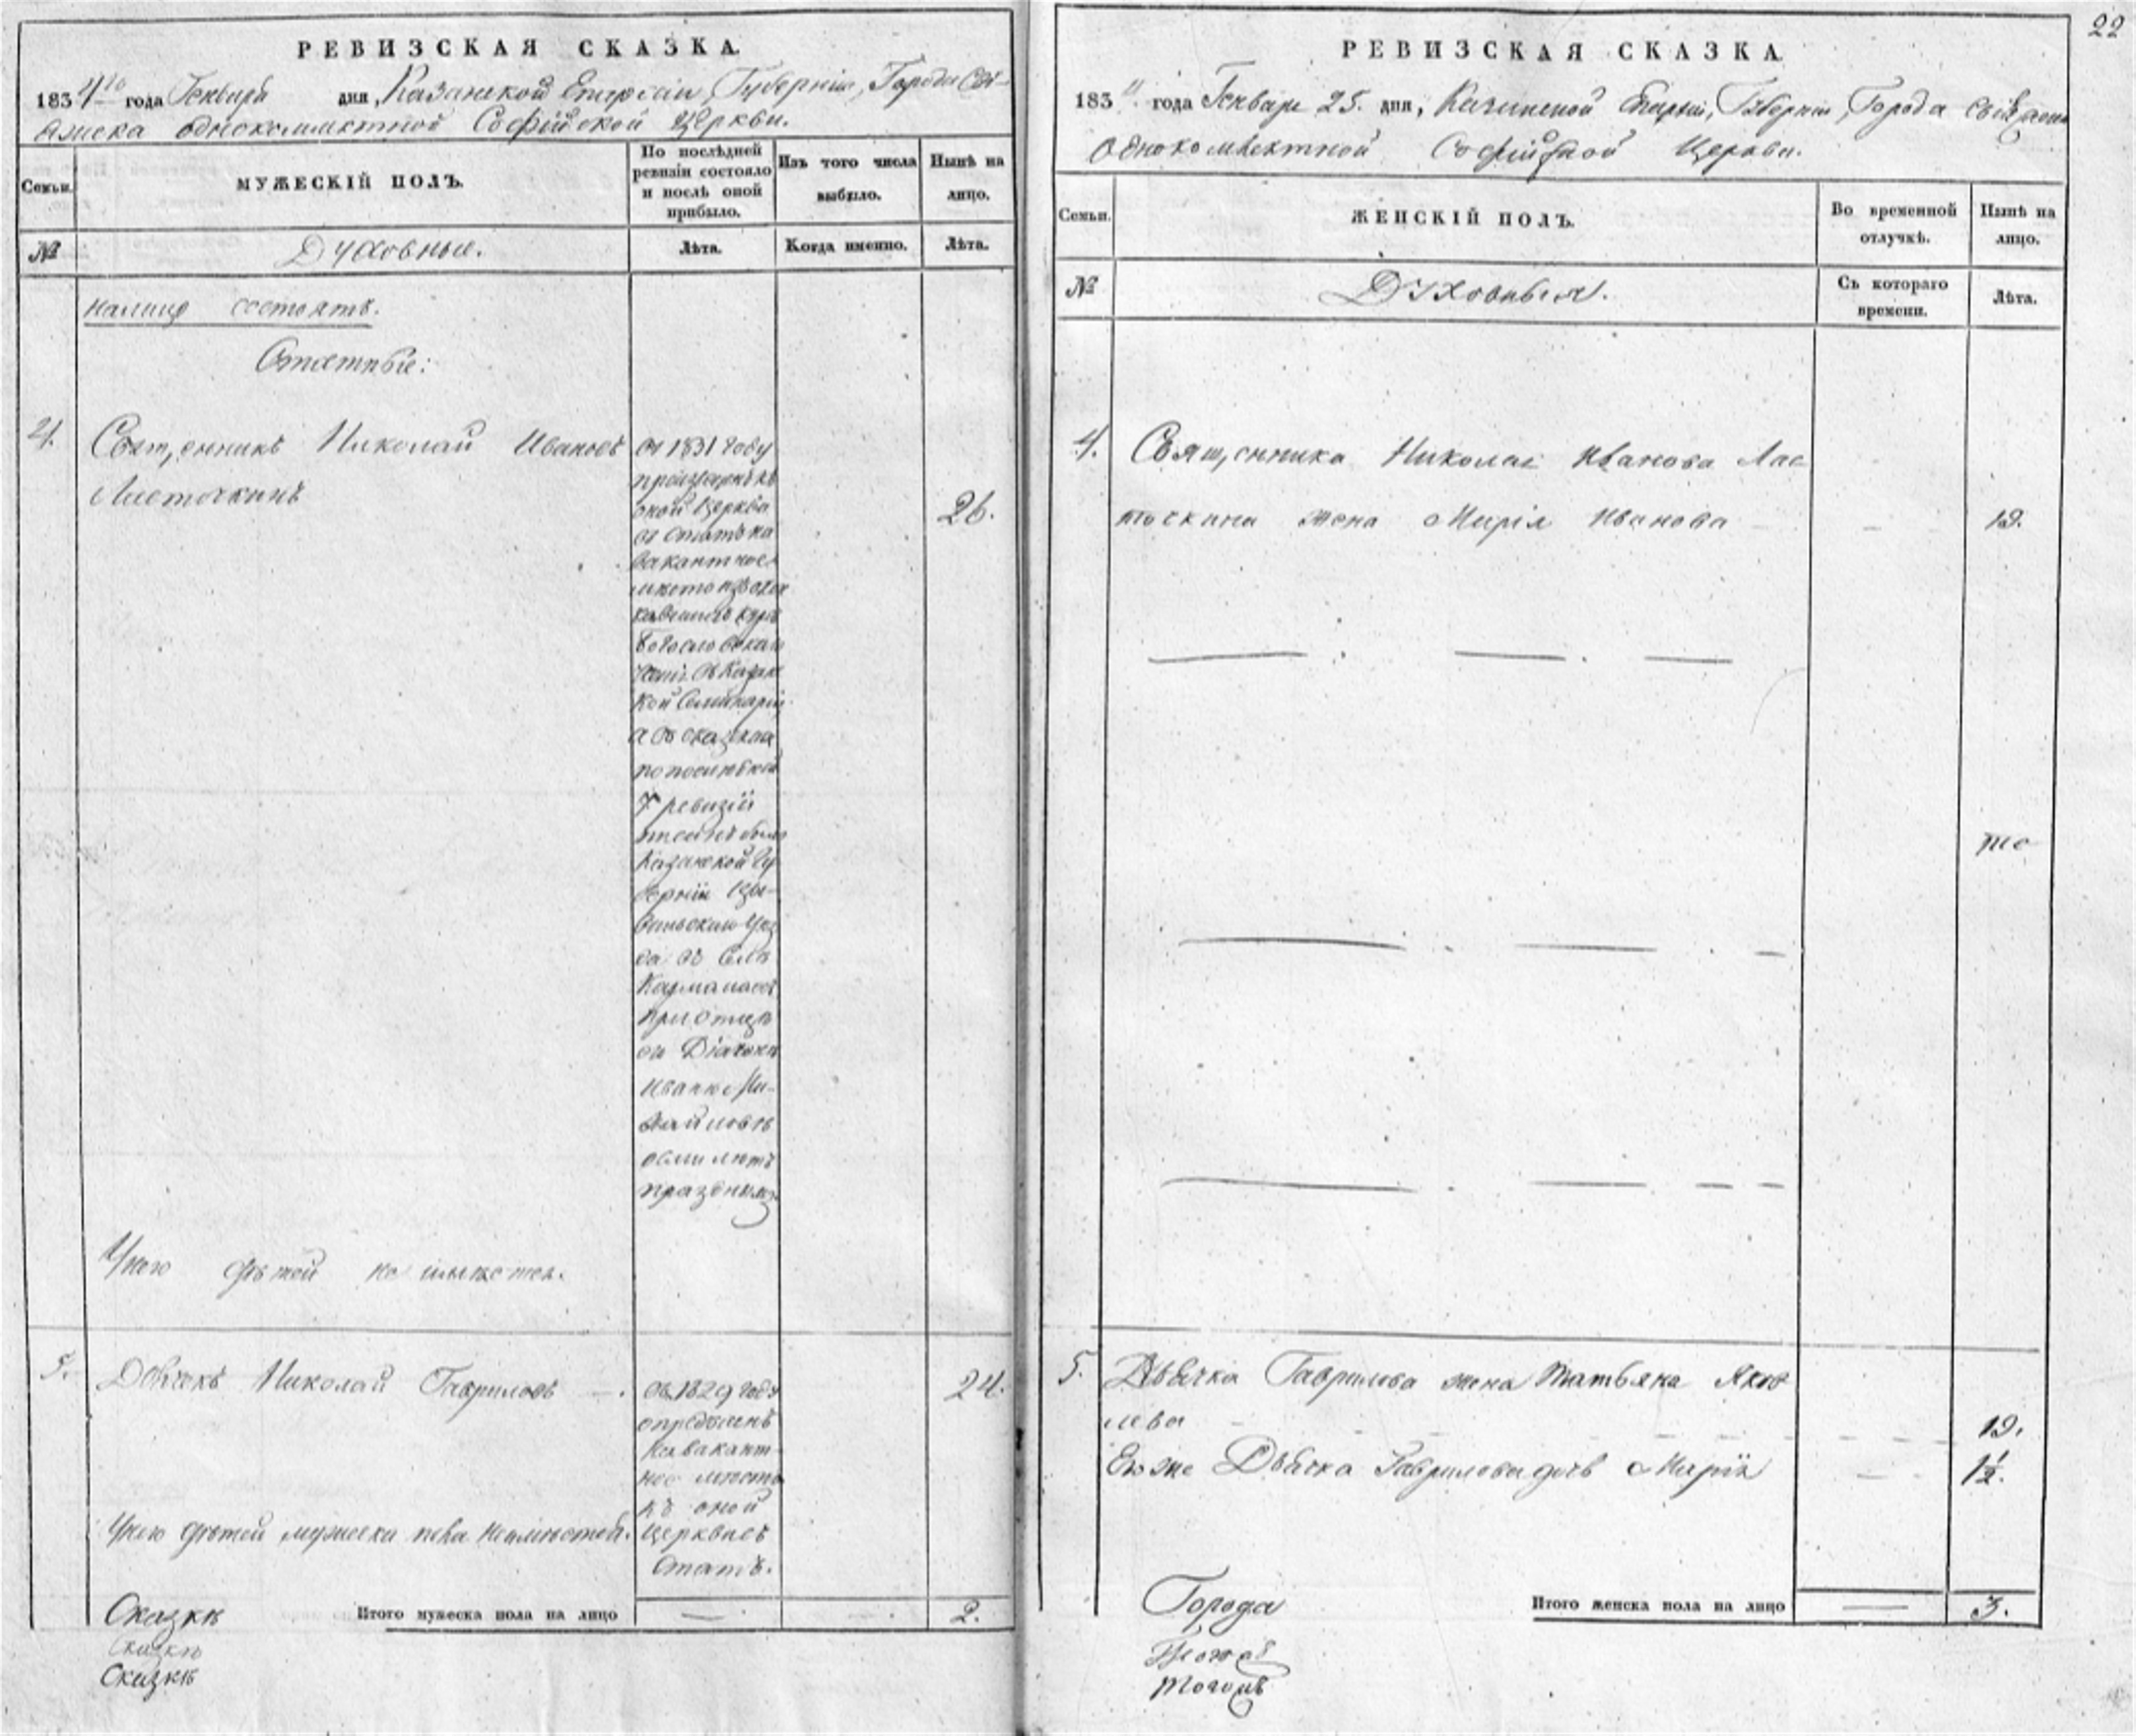 РЕВИЗСКАЯ СКАЗКА.
1834го года Генваря дня, Казанской Епархіи, Губерніи, Города Сві-
яжска однокомлектной Софійской Церкви.
Семьи.
МУЖЕСКІЙ ПОЛЪ.
По послѣдней ревизіи состояло и послѣ оной прибыло.
Изъ того числа выбыло.
Нынѣ на лицо.
№
Духовные.
Лѣта.
Когда именно.
Лѣта.
налицо состоятъ.
Статные:
4.
Священникъ Николай Ивановъ
Ласточкинъ
26.
въ 1831 году
произведенъ къ
оной Церкви
въ статъ на
вакантное
мѣсто
курса
въ Казан
кой Семинаріи
а въ сказках
по послѣдней
7 ревизіи
Казанской Гу
берніи Ци-
вильскаго Уѣз
да въ Селѣ
при отцѣ
Иванѣ Ми-
хайловѣ
У него дѣтей не имѣется.
5.
Дьячекъ Николай Гавриловъ
24.
Въ 1829 году
опредѣленъ
на вакант
ное мѣсто
къ оной
Церкви въ
Статъ.
У него дѣтей мужеска пола не имѣется.
Сказкѣ
Итого мужеска пола на лицо
2.
Сказкѣ
Сказкѣ
22
РЕВИЗСКАЯ СКАЗКА
1834. года Генваря 25. дня, Казанской Епархіи, Губерніи, Города Свіяжска
Однокомплектной Софійской Церкви.
Семьи.
ЖЕНСКІЙ ПОЛЪ.
Во временной отлучкѣ.
Нынѣ на лицо.
№
Духовныя.
Съ котораго времени.
Лѣта.
4.
Священника Николая Иванова Лас
точкина жена Марія Иванова
19.
5.
Дьячка Гаврилова жена Татьяна Яков
лева
19.
Его же Дьячка Гаврилова дочь Марія
1½.
Города
Итого женска пола на лицо
3.